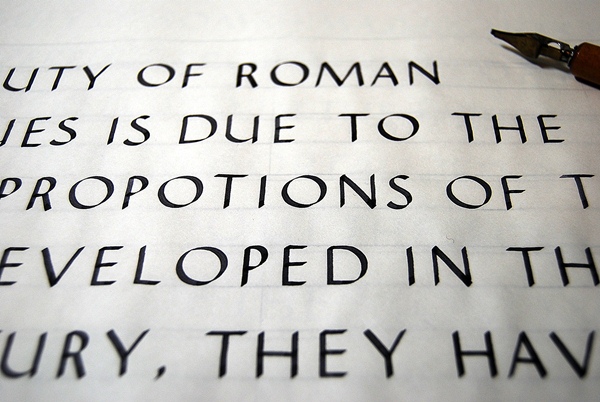 UTY OF ROMAN
UES IS DUE TO THE
PROPOTIONS OF T
EVELOPED IN TH
URY, THEY HAV